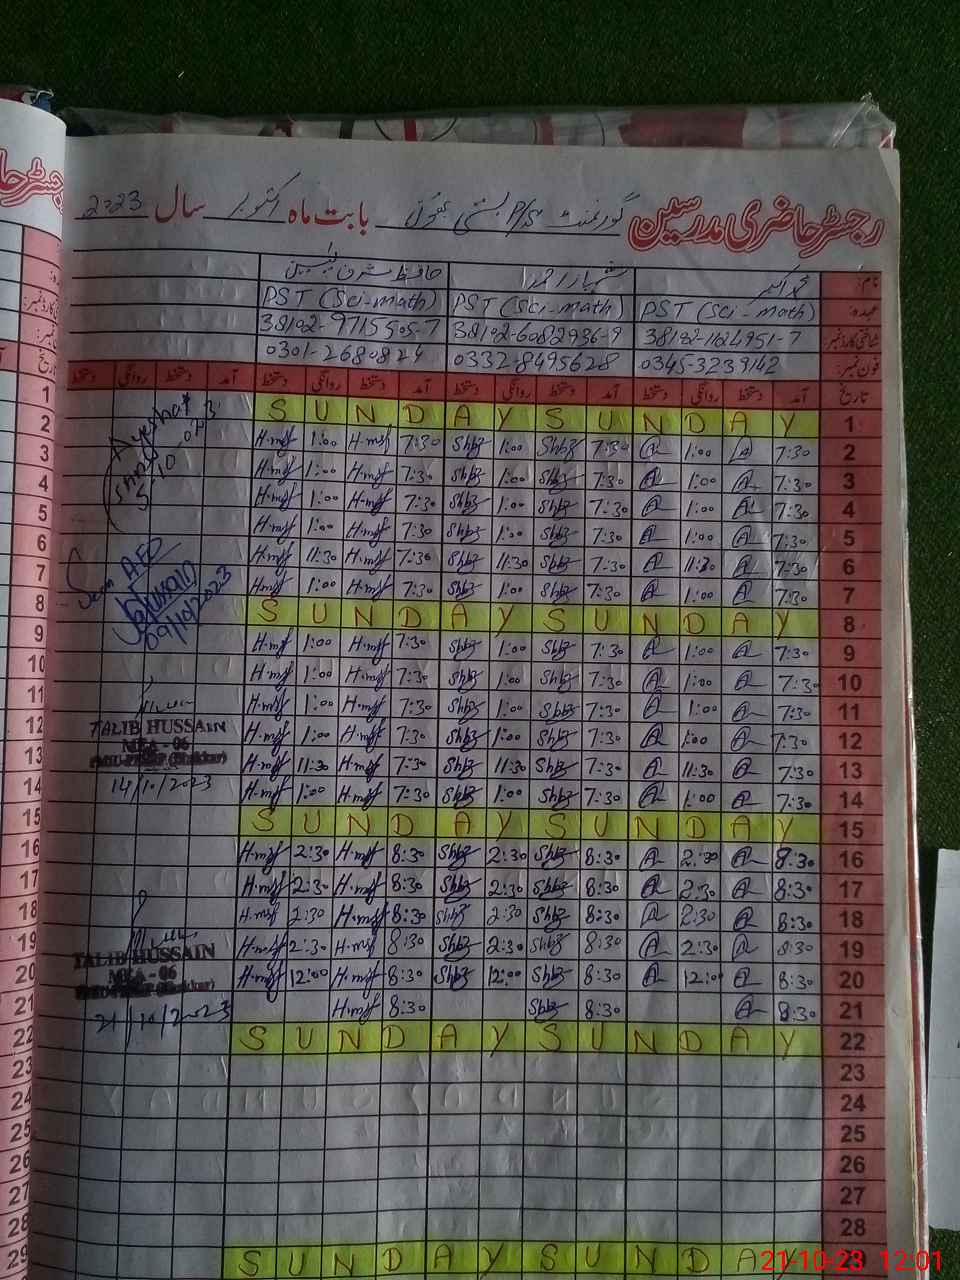 رجسٹر حاضری مدرسین گورنمنٹ P/S بستی بابت ماہ اکتوبر سال 2023
نام: شہباز احمد حافظ
عہدہ: PST (Sci-math) PST (Sci-math) PST (Sci-math)
شناختی کارڈ نمبر: 38102-1124951-7 38102-6082936-9 38102-9715505-7
فون نمبر: 0345-3239142 0332-8495628 0301-2680824
تاریخ آمد دستخط روانگی دستخط آمد دستخط روانگی دستخط آمد دستخط روانگی دستخط آمد دستخط روانگی دستخط
1 S U N D A Y S U N D A Y
2 7:30 1:00 7:30 Shbz 1:00 Shbz 7:30 1:00
3 7:30 1:00 7:30 Shbz 1:00 Shbz 7:30 1:00
4 7:30 1:00 7:30 Shbz 1:00 Shbz 7:30 1:00
5 7:30 1:00 7:30 Shbz 1:00 Shbz 7:30 1:00
6 7:30 11:30 7:30 Shbz 11:30 Shbz 7:30 11:30
7 7:30 1:00 7:30 Shbz 1:00 Shbz 7:30 1:00
8 S U N D A Y S U N D A Y
9 7:30 1:00 7:30 Shbz 1:00 Shbz 7:30 1:00
10 7:30 1:00 7:30 Shbz 1:00 Shbz 7:30 1:00
11 7:30 1:00 7:30 Shbz 1:00 Shbz 7:30 1:00
12 7:30 1:00 7:30 Shbz 1:00 Shbz 7:30 1:00
13 7:30 11:30 7:30 Shbz 11:30 Shbz 7:30 11:30
14 7:30 1:00 7:30 Shbz 1:00 Shbz 7:30 1:00
15 S U N D A Y S U N D A Y
16 8:30 2:30 8:30 Shbz 2:30 Shbz 8:30 2:30
17 8:30 2:30 8:30 Shbz 2:30 Shbz 8:30 2:30
18 8:30 2:30 8:30 Shbz 2:30 Shbz 8:30 2:30
19 8:30 2:30 8:30 Shbz 2:30 Shbz 8:30 2:30
20 8:30 12:00 8:30 Shbz 12:00 Shbz 8:30 12:00
21 8:30 8:30 Shbz 8:30
22 S U N D A Y S U N D A Y
23
24
25
26
27
28
S U N D A Y S U N D A Y
Seen
09/10/2023
TALIB HUSSAIN
MEA - 06
14/10/2023
TALIB HUSSAIN
MEA - 06
21/10/2023
1
2
3
4
5
6
7
8
9
10
11
12
13
14
15
16
17
18
19
20
21
22
23
24
25
26
27
28
29
21-10-23 12:01